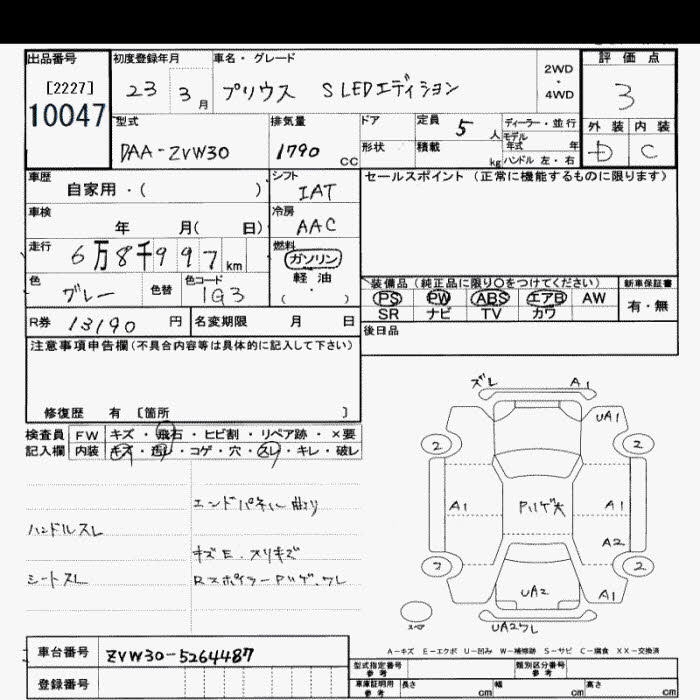 出品番号 初度登録年月 車名・グレード 2WD・4WD 評価点
[2227]
10047
23 3月 プリウス S LEDエディション 3
型式 排気量 ドア 定員 5人 ディーラー・並行 外装 内装
モデル年式 年
DAA-ZVW30 1790cc 形状 積載 kg ハンドル 左・右 D C
車歴 シフト セールスポイント(正常に機能するものに限ります)
自家用・( ) IAT
車検 冷房
年 月( 日) AAC
走行 燃料
6万8千997km ガソリン
軽油
( )
色 色替 色コード
グレー 1G3
装備品(純正品に限り○をつけてください) 新車保証書
PS PW ABS エアB AW 有・無
SR ナビ TV カワ
R券 13190円 名変期限 月 日 後日品
注意事項申告欄(不具合内容等は具体的に記入して下さい)
修復歴 有 〔箇所 〕
検査員 FW キズ・飛石・ヒビ割・リペア跡・×要
記入欄 内装 キズ・汚レ・コゲ・穴・スレ・キレ・破レ
エンドパネル曲り
ハンドルスレ
キズE、スリキズ
シートスレ
RスポイラーPハゲ、ワレ
ズレ A1
UA1
2 2
A1 Pハゲ大 A1
A2
2 2
UA2 A1
スペア
UA2ワレ
A-キズ E-エクボ U-凹み W-補修跡 S-サビ C-腐食 XX-交換済
車台番号 ZVW30-5264487
型式指定番号 参考 類別区分番号 参考
登録番号
車庫証明用 参考 長さ cm 幅 cm 高さ cm